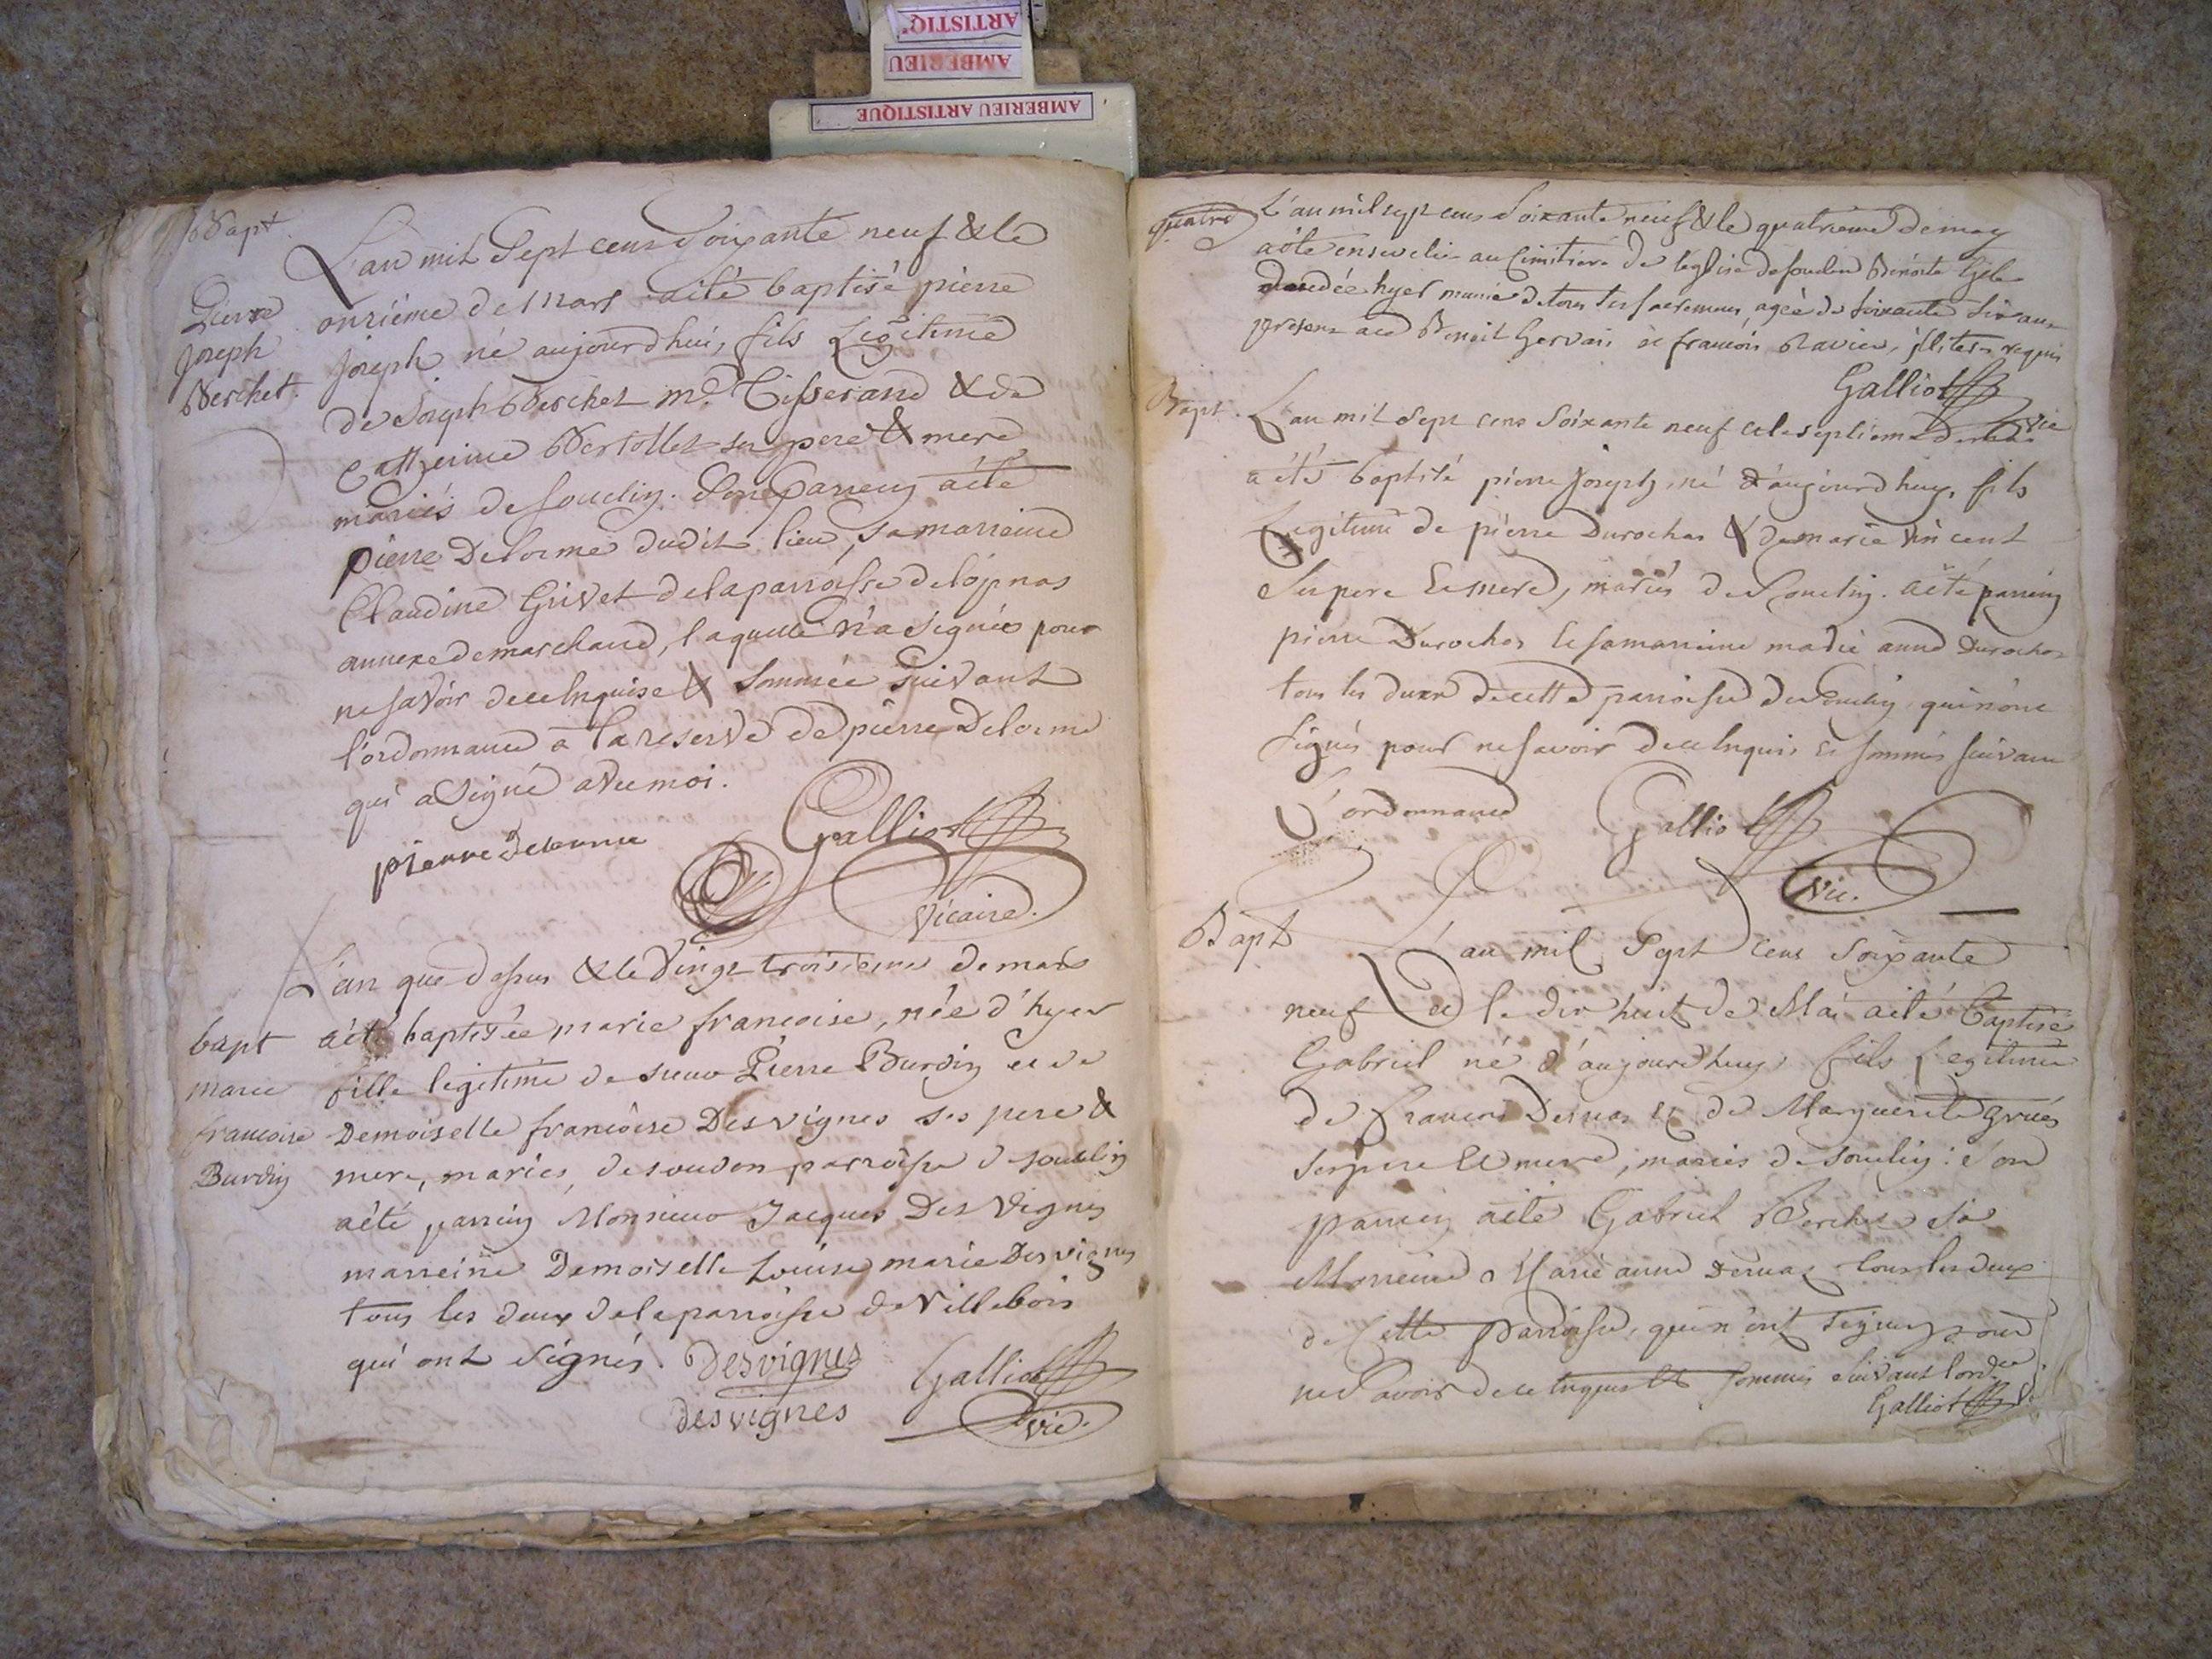 ARTISTIQ'
AMBERIEU
AMBERIEU ARTISTIQUE
Bapt.
Pierre
Joseph
Berchet.
L'an mil Sept cens Soixante neuf & le
onzième de Mars aété baptisé pierre
joseph né aujourdhui, fils Légitime
de Joseph Berchet md. Tisserand & de
Catherine Bertollet ses pere & mere
mariés de Souclin. Son Parrein aété
pierre Delorme dudit lieu, Sa marreine
Claudine Grivet dela parroisse de lojnas
annexe de marchand, laquelle n'a Signée pour
ne savoir de ce Enquise & Sommée Suivant
l'ordonnance à la reserve de pierre Delorme
qui a Signé avec moi.
pierre Delorme
Galliot
Vicaire.
bapt
marie
francoise
Burdin
L'an que dessus & le Vingt troisieme de mars
a été baptisée marie francoise, née d'hyer
fille legitime de sieur Pierre Burdin et de
Demoiselle francoise Desvignes ses pere &
mere, mariés, de soudon parroisse de souclin
aété parrein Monsieur Jacques Des Vignes
marreine Demoiselle Louise marie Desvignes
tous les deux dela parroisse de Villebois
qui ont Signés. Desvignes Galliot
desvignes vic.
L'an mil sept cens Soixante neuf & le quatrieme de may
aété ensevelie au Cimitiere de l'eglise de souclin Benoite
hyer munie de tous ses sacremens, agée de soixante six ans
presens Benoit Gervais et francois Ravier, illiteres requis
Galliot
vic
Bapt.
L'an mil Sept cens Soixante neuf et le septieme de
a été baptisé pierre Joseph, né d'aujourd huy, fils
Legitime de pierre Durochas & de marie Vincent
Ses pere & mere, mariés de Souclin. aété parrein
pierre Durochas & sa marreine marie anne Durochas
tous les deux de cette parroisse de Souclin, qui n'ont
Signés pour ne savoir de ce Enquis & sommés suivant
L'ordonnance Galliot
Vic.
Bapt
L'an mil Sept Cens Soixante
neuf et le dix huit de Mai aété Baptisé
Gabriel né d'aujourdhuy, fils Legitime
de francois Dernaz et de Marguerite Grués
Ses pere & mere, mariés de Souclin: Son
parrein aété Gabriel Berchet Sa
Marreine Marie anne Dernaz tous les deux
de Cette Parroisse, qui n'ont Signés pour
ne Savoir de ce Enquis & Sommés Suivant l'ordce.
Galliot